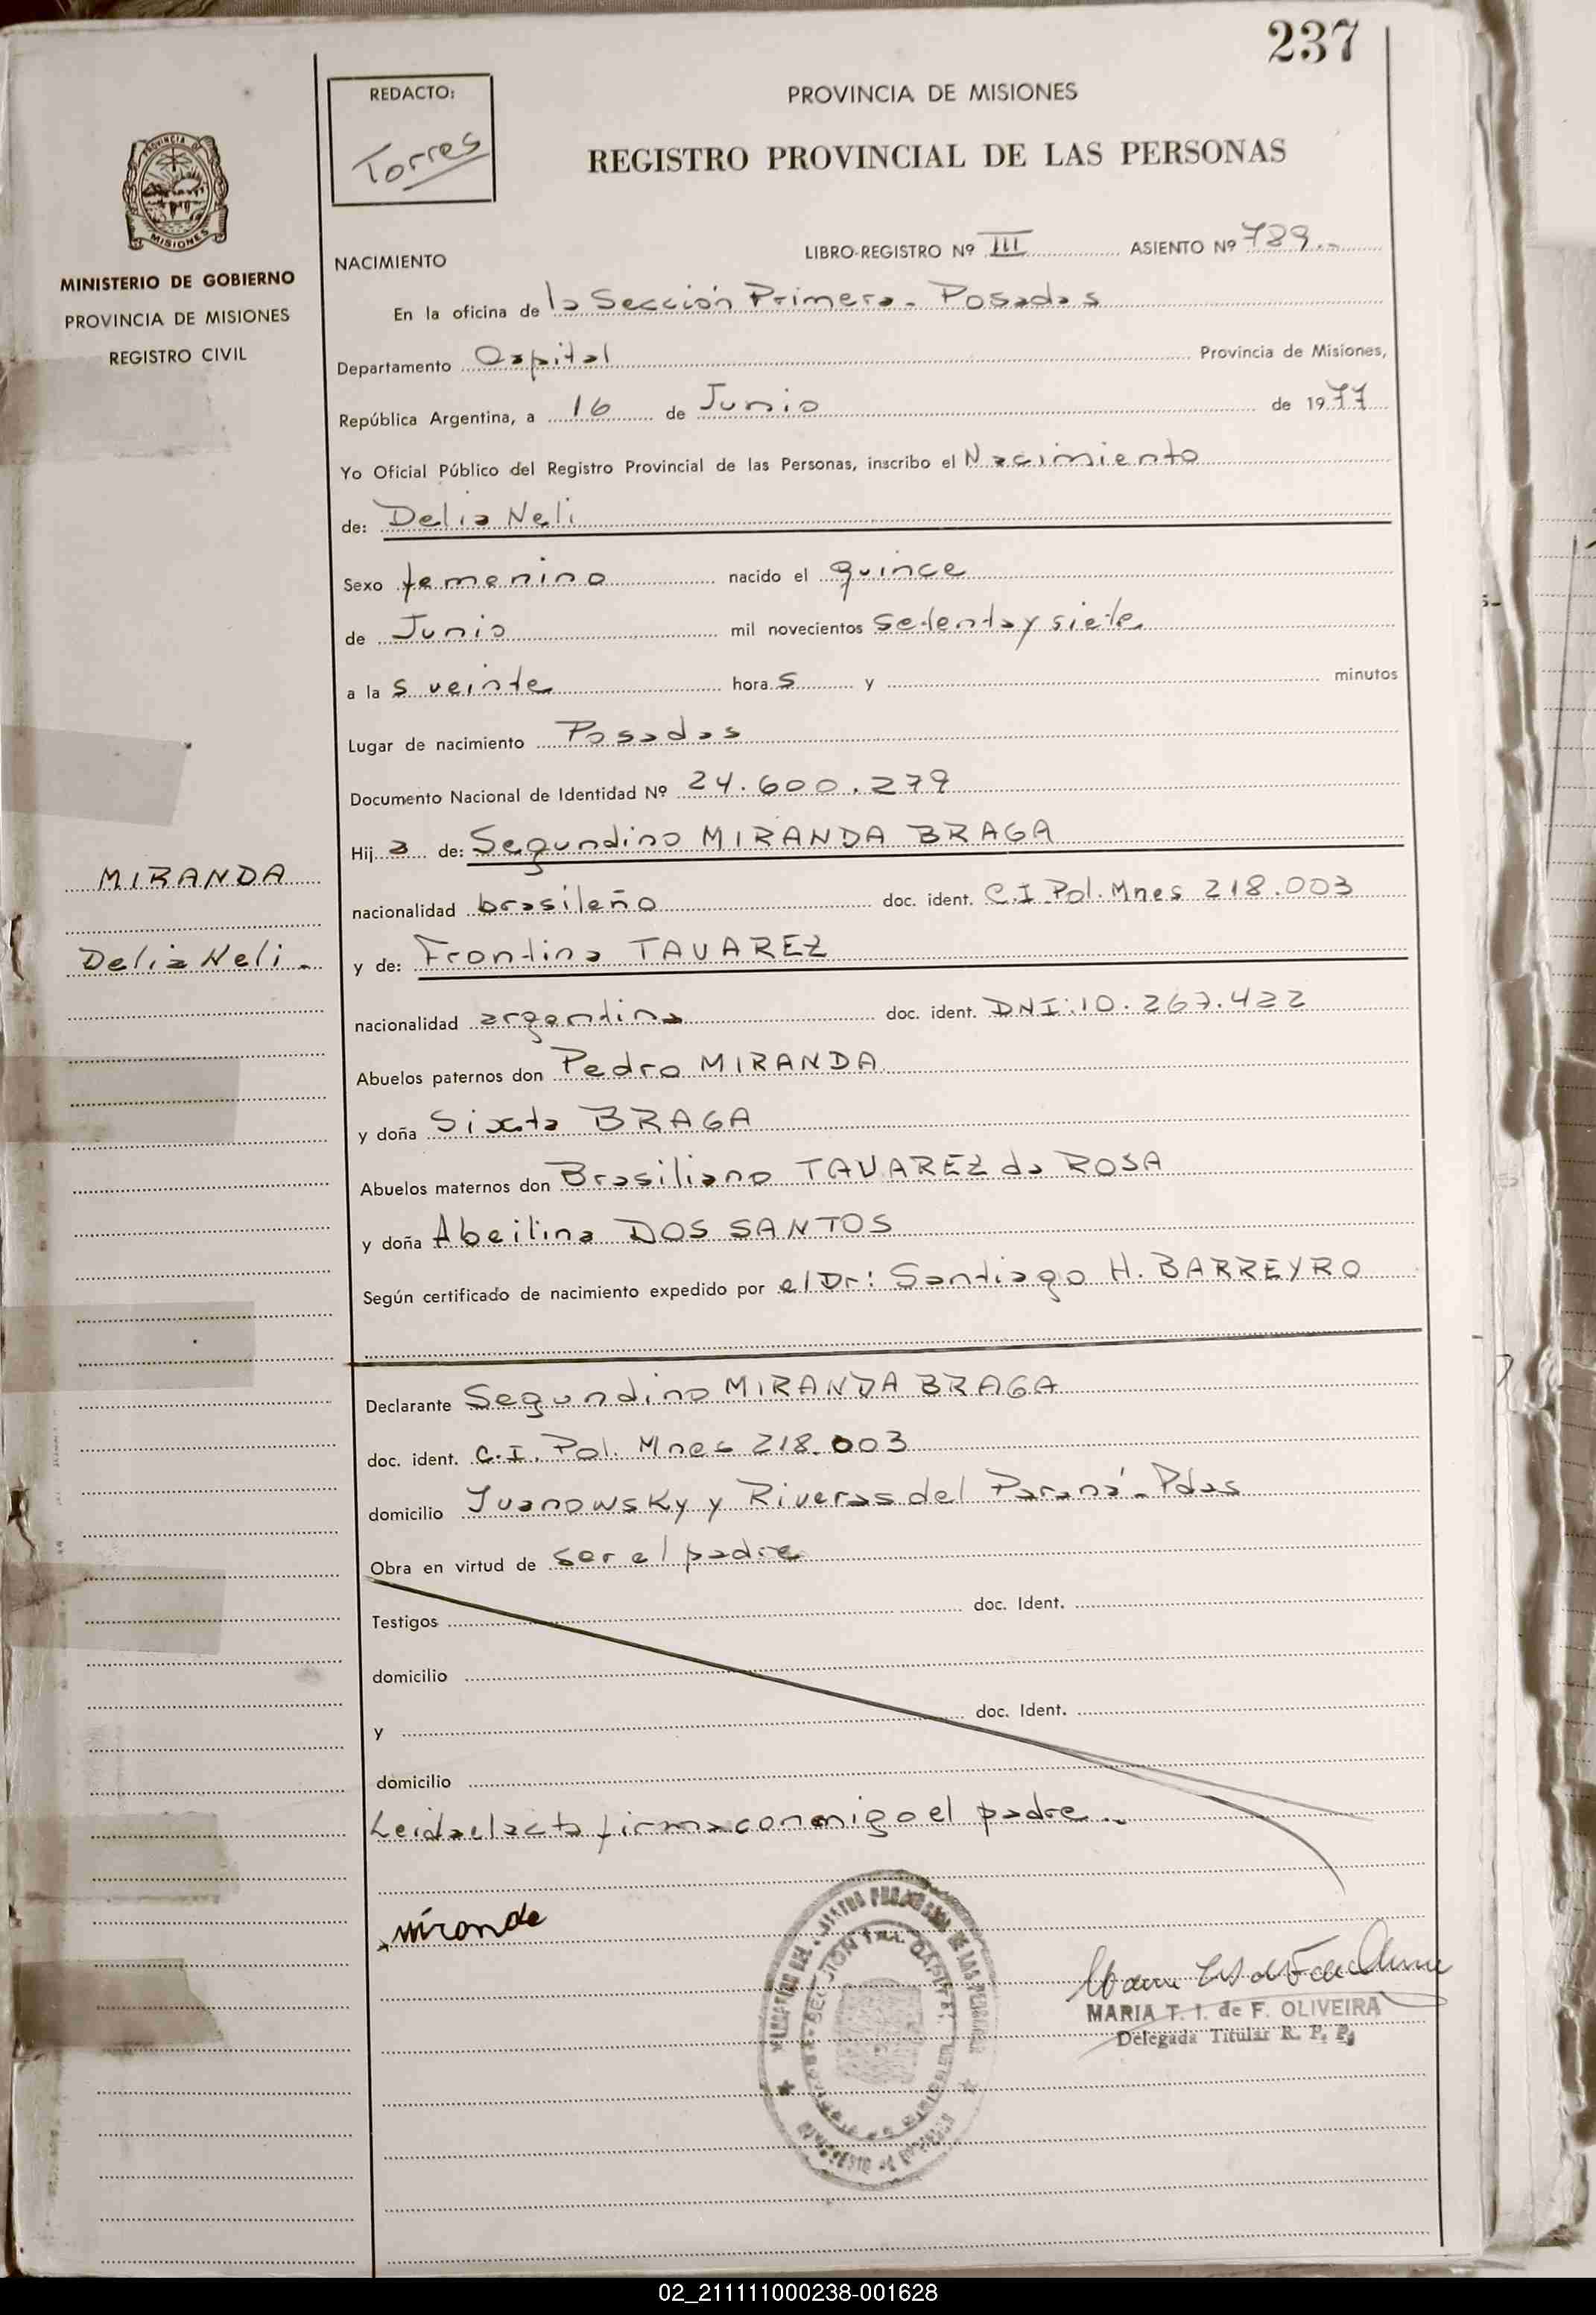 237
REDACTO:
Torres
PROVINCIA DE MISIONES
REGISTRO PROVINCIAL DE LAS PERSONAS
PROVINCIA DE
MISIONES
MINISTERIO DE GOBIERNO
PROVINCIA DE MISIONES
REGISTRO CIVIL
NACIMIENTO
LIBRO-REGISTRO Nº III ASIENTO Nº 789.-
En la oficina de la Sección Primera - Posadas
Departamento Capital Provincia de Misiones,
República Argentina, a 16 de Junio de 1977
Yo Oficial Público del Registro Provincial de las Personas, inscribo el Nacimiento
de: Delia Neli
Sexo femenino nacido el quince
de Junio mil novecientos setenta y siete
a la s veinte hora s y minutos
Lugar de nacimiento Posadas
Documento Nacional de Identidad Nº 24.600.279
Hij a de: Segundino MIRANDA BRAGA
MIRANDA
nacionalidad brasileño doc. ident. C.I Pol. Mnes 218.003
Delia Neli.-
y de: Frontina TAVAREZ
nacionalidad argentina doc. ident. DNI: 10.267.422
Abuelos paternos don Pedro MIRANDA
y doña Sixta BRAGA
Abuelos maternos don Brasiliano TAVAREZ da ROSA
y doña Abeilina DOS SANTOS
Según certificado de nacimiento expedido por el Dr: Santiago H. BARREYRO
Declarante Segundino MIRANDA BRAGA
doc. ident. C.I. Pol. Mnes 218.003
domicilio Ivanowsky y Riveras del Paraná - Pdas
Obra en virtud de ser el padre
Testigos doc. Ident.
domicilio
y doc. Ident.
domicilio
Leida el acta firma conmigo el padre.-
miranda
MARIA T. I. de F. OLIVEIRA
Delegada Titular R. P. P.
02_211111000238-001628